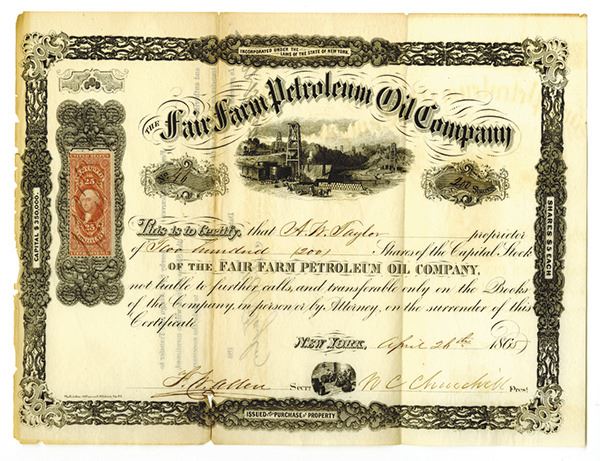 INCORPORATED UNDER THE
LAWS OF THE STATE OF NEW YORK.
THE Fair Farm Petroleum Oil Company
25
CAPITAL $350,000.
SHARES $5 EACH
This is to Certify, that A. W. Taylor proprietor
of Two hundred (200) Shares of the Capital Stock
OF THE FAIR FARM PETROLEUM OIL COMPANY,
not liable to further calls, and transferable only on the Books
of the Company, in person or by Attorney, on the surrender of this
Certificate
NEW YORK, April 26th 1865
Secy. W C Churchill Prest.
ISSUED FOR PURCHASE OF PROPERTY